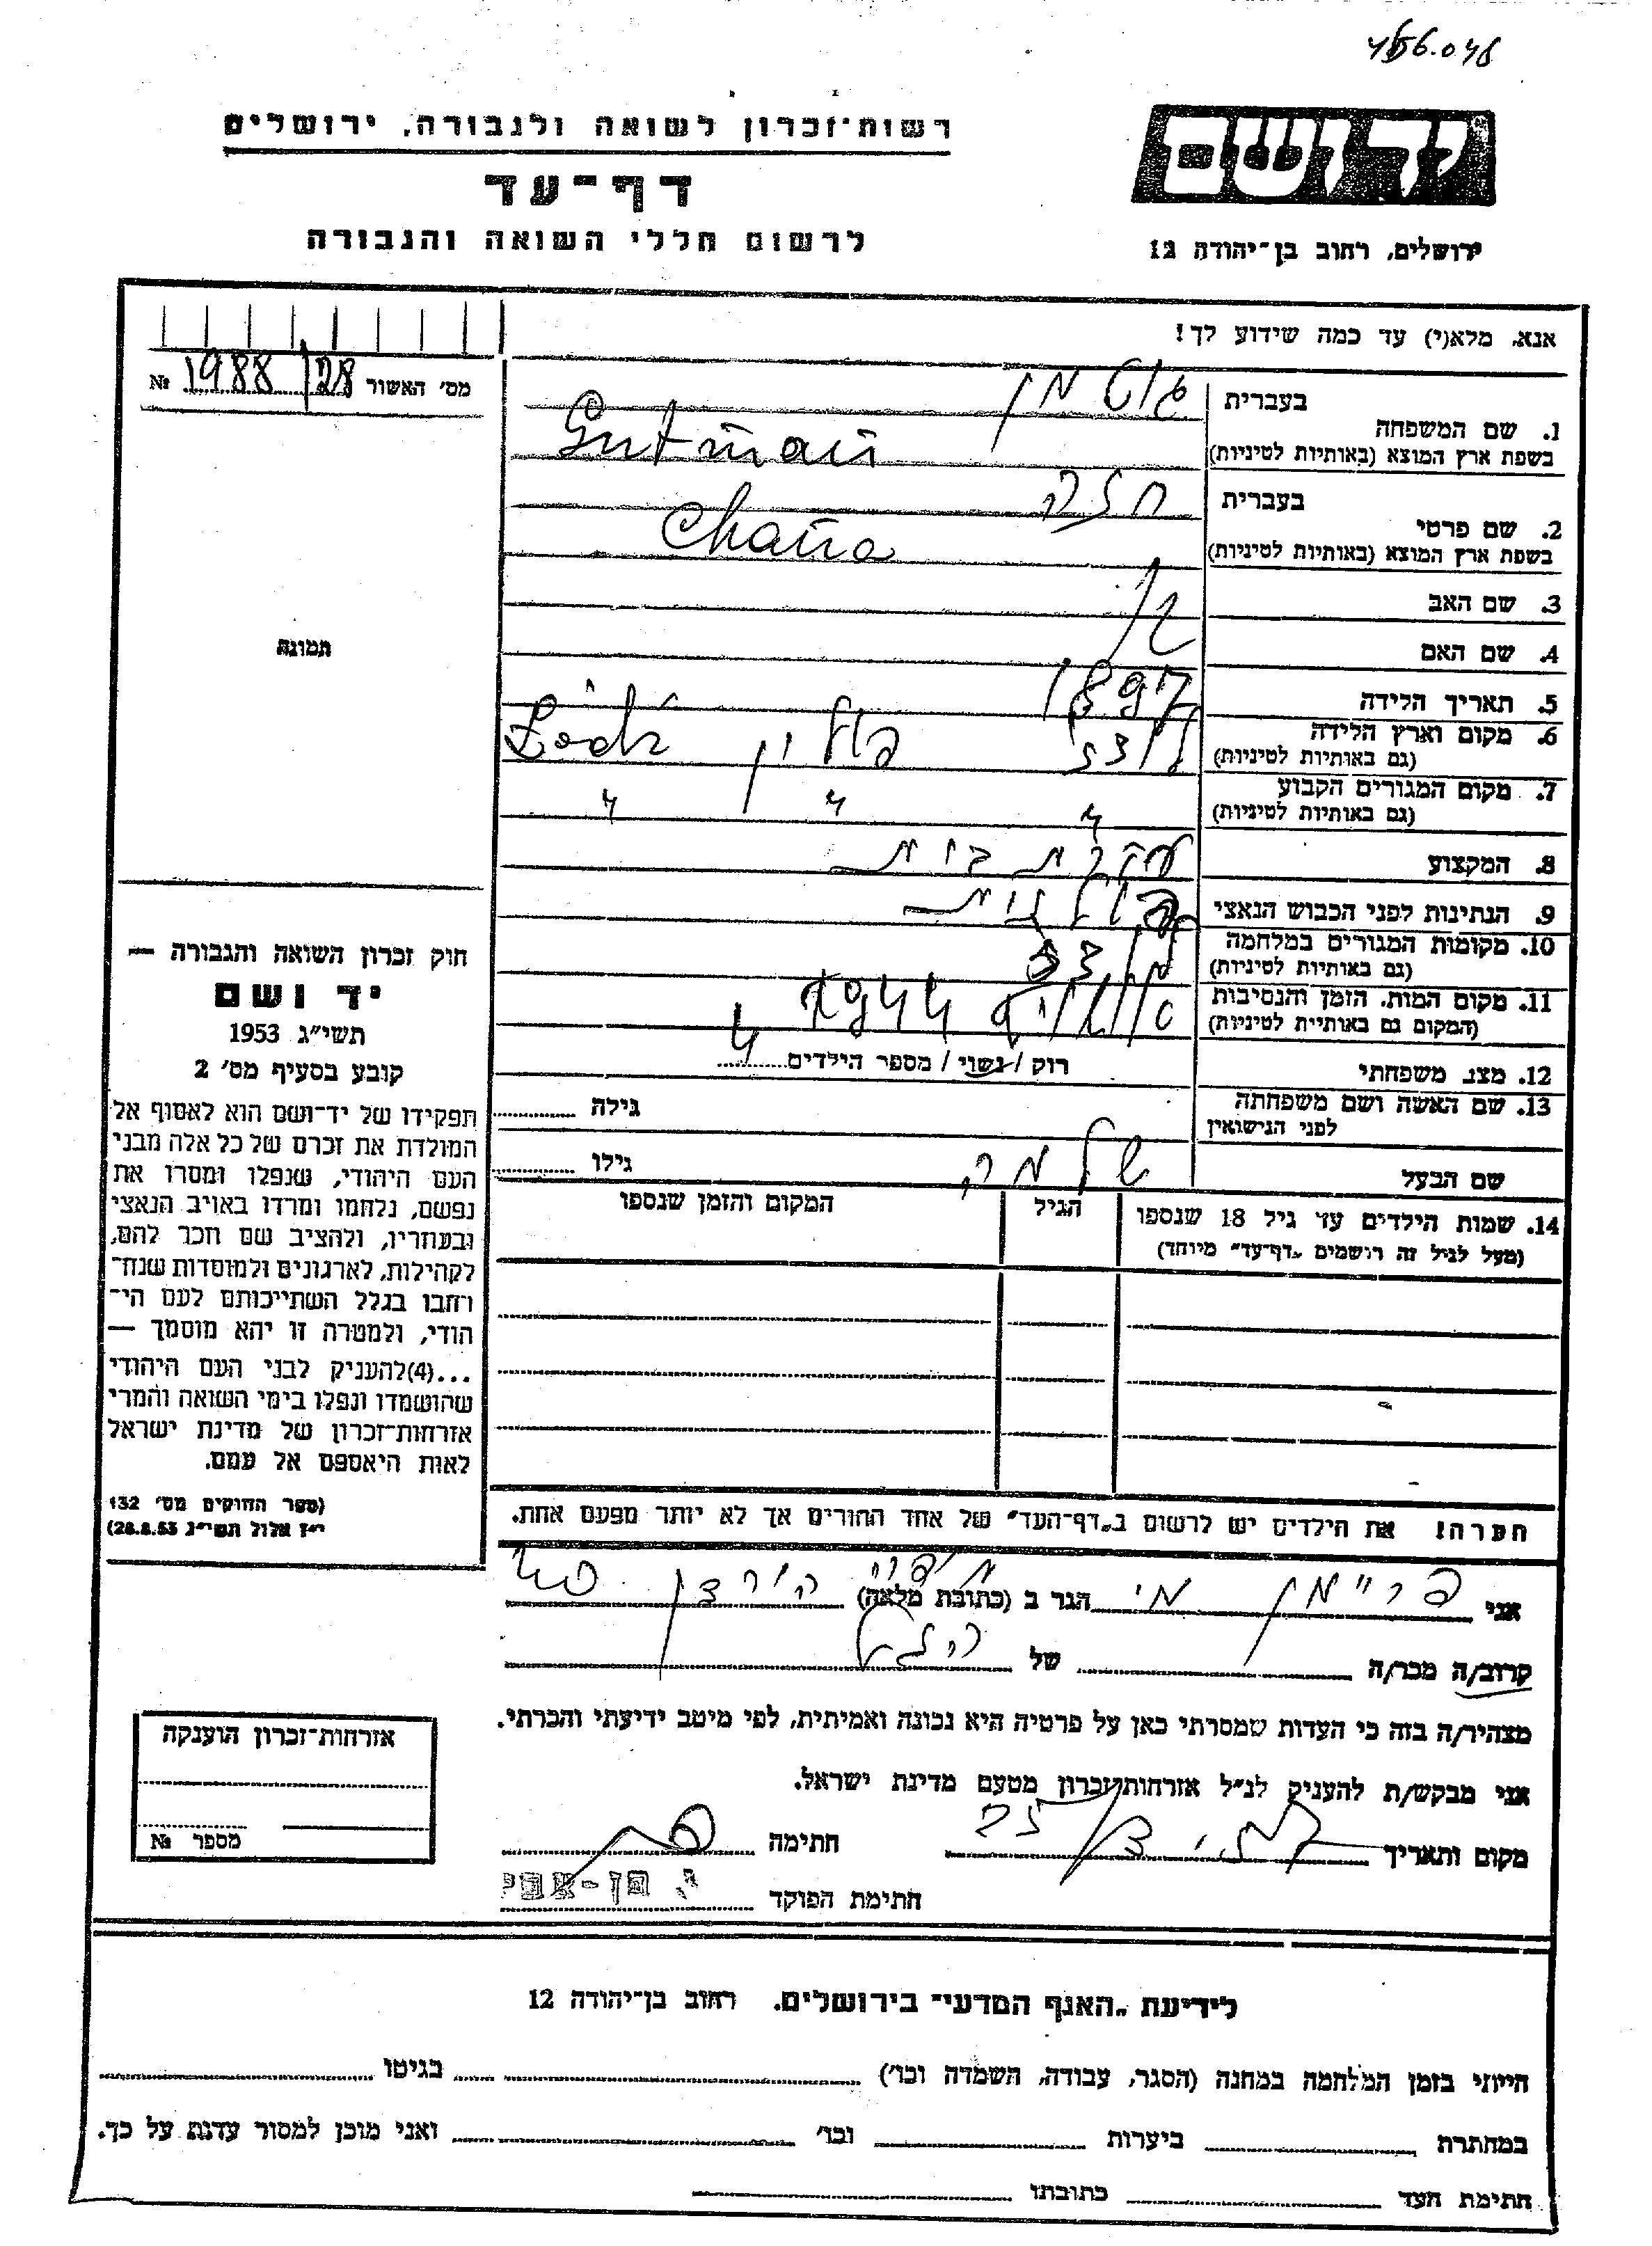 רשות־זכרון לשואה ולגבורה, ירושלים
דף־עד
לרשום חללי השואה והגבורה
יד ושם
ירושלים, רחוב בן־יהודה 12
אנא, מלא(י) עד כמה שידוע לך!
מס' האשור 1988/128 №
תמונה
1. שם המשפחה
בעברית גוטמן
בשפת ארץ המוצא (באותיות לטיניות) Gutman
2. שם פרטי
בעברית חנה
בשפת ארץ המוצא (באותיות לטיניות) Chana
3. שם האב
4. שם האם
5. תאריך הלידה 1897
6. מקום וארץ הלידה לודז פולין Łódź
(גם באותיות לטיניות)
7. מקום המגורים הקבוע " " "
(גם באותיות לטיניות)
8. המקצוע עקרת בית
9. הנתינות לפני הכבוש הנאצי פולנית
10. מקומות המגורים במלחמה לודז
(גם באותיות לטיניות)
11. מקום המות, הזמן והנסיבות 1944
(המקום גם באותיות לטיניות)
12. מצב משפחתי רוק / נשוי / מספר הילדים 4
13. שם האשה ושם משפחתה גילה
לפני הנישואין
שם הבעל שלמה גילו
14. שמות הילדים עד גיל 18 שנספו הגיל המקום והזמן שנספו
(מעל לגיל זה רושמים „דף־עד" מיוחד)
הערה! את הילדים יש לרשום ב„דף־העד" של אחד ההורים אך לא יותר מפעם אחת.
חוק זכרון השואה והגבורה —
יד ושם
תשי״ג 1953
קובע בסעיף מס' 2
תפקידו של יד־ושם הוא לאסוף אל
המולדת את זכרם של כל אלה מבני
העם היהודי, שנפלו ומסרו את
נפשם, נלחמו ומרדו באויב הנאצי
ובעוזריו, ולהציב שם וזכר להם,
לקהילות, לארגונים ולמוסדות שנח־
רבו בגלל השתייכותם לעם הי־
הודי, ולמטרה זו יהא מוסמך —
...(4)להעניק לבני העם היהודי
שהושמדו ונפלו בימי השואה והמרי
אזרחות־זכרון של מדינת ישראל
לאות היאספם אל עמם.
(ספר החוקים מס' 132
י״ז אלול תשי״ג 28.8.53)
אני פריימן הגר ב (כתובת מלאה) חיפה הירדן
קרוב/ה מכר/ה של
מצהיר/ה בזה כי העדות שמסרתי כאן על פרטיה היא נכונה ואמיתית, לפי מיטב ידיעתי והכרתי.
אני מבקש/ת להעניק לנ״ל אזרחות־זכרון מטעם מדינת ישראל.
מקום ותאריך חתימה
חתימת הפוקד
אזרחות־זכרון הוענקה
מספר №
לידיעת „האגף המדעי" בירושלים, רחוב בן־יהודה 12
הייתי בזמן המלחמה במחנה (הסגר, עבודה, השמדה וכו') בגיטו
במחתרת ביערות וכו' ואני מוכן למסור עדות על כך.
חתימת העד כתובתו